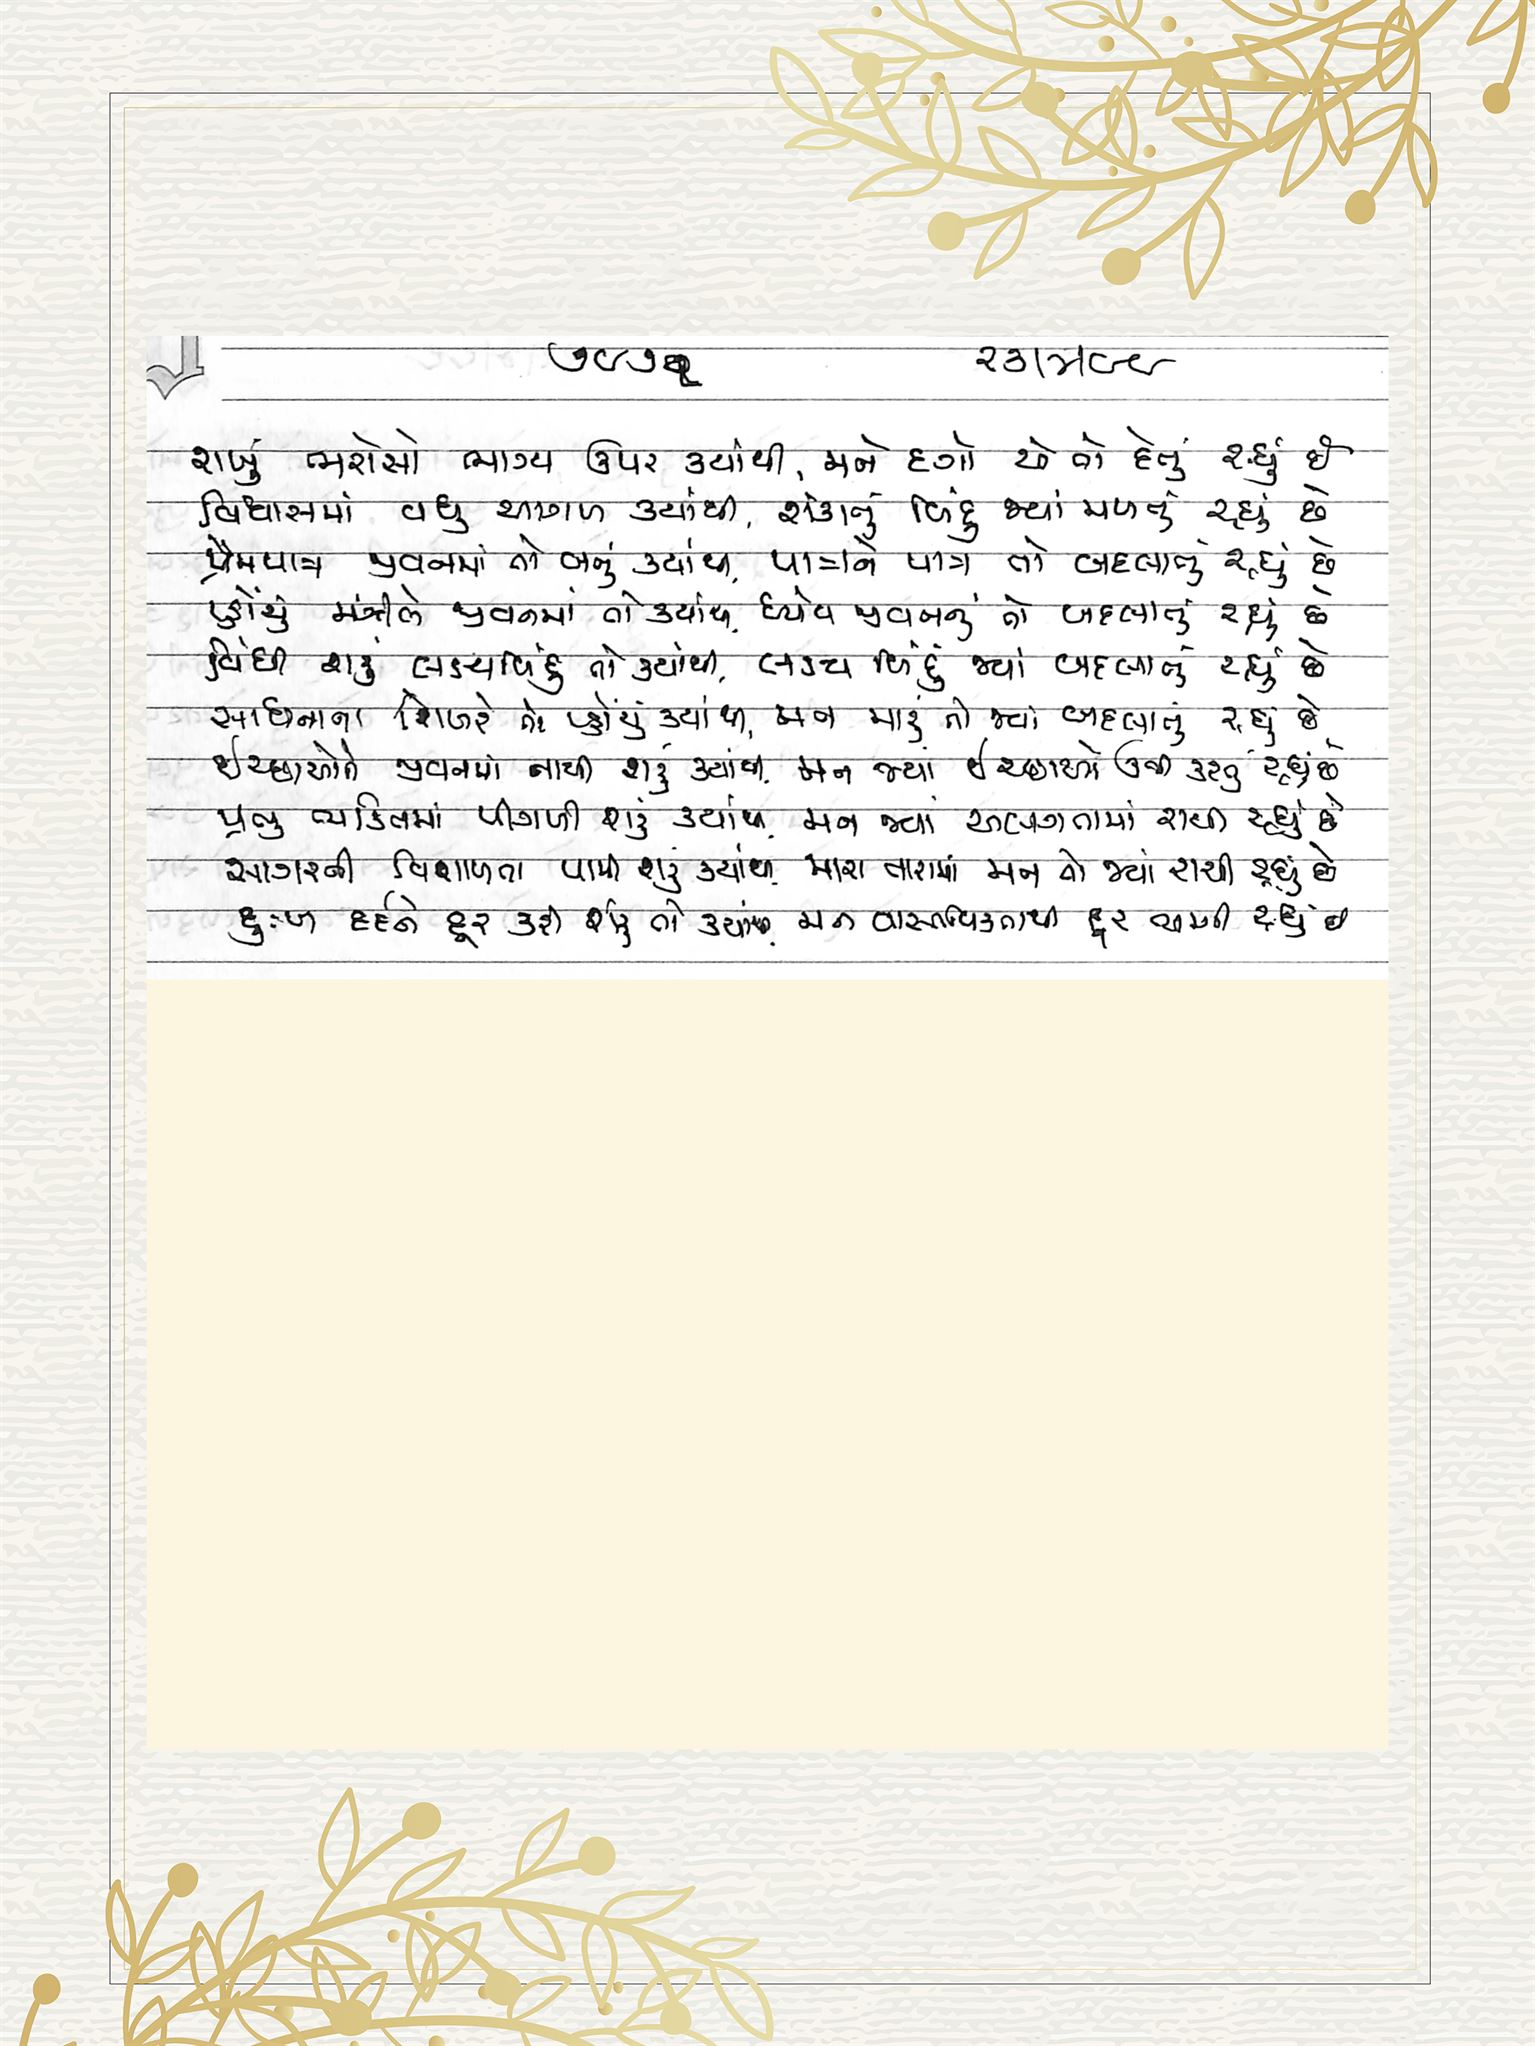 રાખું ભરોસો ભાગ્ય ઉપર ક્યાંથી, મને દગો એ તો દેતું રહ્યું છે
વિશ્વાસમાં વધુ આગળ ક્યાંથી, શંકાનું બિંદુ જ્યાં મળતું રહ્યું છે
પ્રેમપાત્ર જીવનમાં તો બનું ક્યાંથી, પાત્રને પાત્ર તો બદલાતું રહ્યું છે
પ્હોંચું મંઝીલે જીવનમાં તો ક્યાંથી, ધ્યેય જીવનનું તો બદલાતું રહ્યું છે
વિંધી શકું લક્ષ્યબિંદુ તો ક્યાંથી, લક્ષ્ય બિંદું જ્યાં બદલાતું રહ્યું છે
સાધનાના શિખરે તો પ્હોંચું ક્યાંથી, મન મારું તો જ્યાં બદલાતું રહ્યું છે
ઈચ્છાઓને જીવનમાં નાથી શકું ક્યાંથી, મન જ્યાં ઈચ્છાઓ ઉભી કરતું રહ્યું છે
પ્રભુ ભક્તિમાં પીગળી શકું ક્યાંથી, મન જ્યાં અલગતામાં રાચી રહ્યું છે
સાગરની વિશાળતા પામી શકું ક્યાંથી, મારા તારામાં મન તો જ્યાં રાચી રહ્યું છે
દુઃખ દર્દને દૂર કરી શકું તો ક્યાંથી, મન વાસ્તવિકતાથી દૂર ભાગી રહ્યું છે